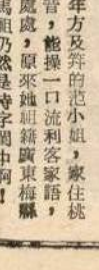 年方及笄的范小姐，家住桃
管，能操一口流利客家語，
處處，原來她祖籍廣東梅縣
馬祖仍然是待字閨中啊！